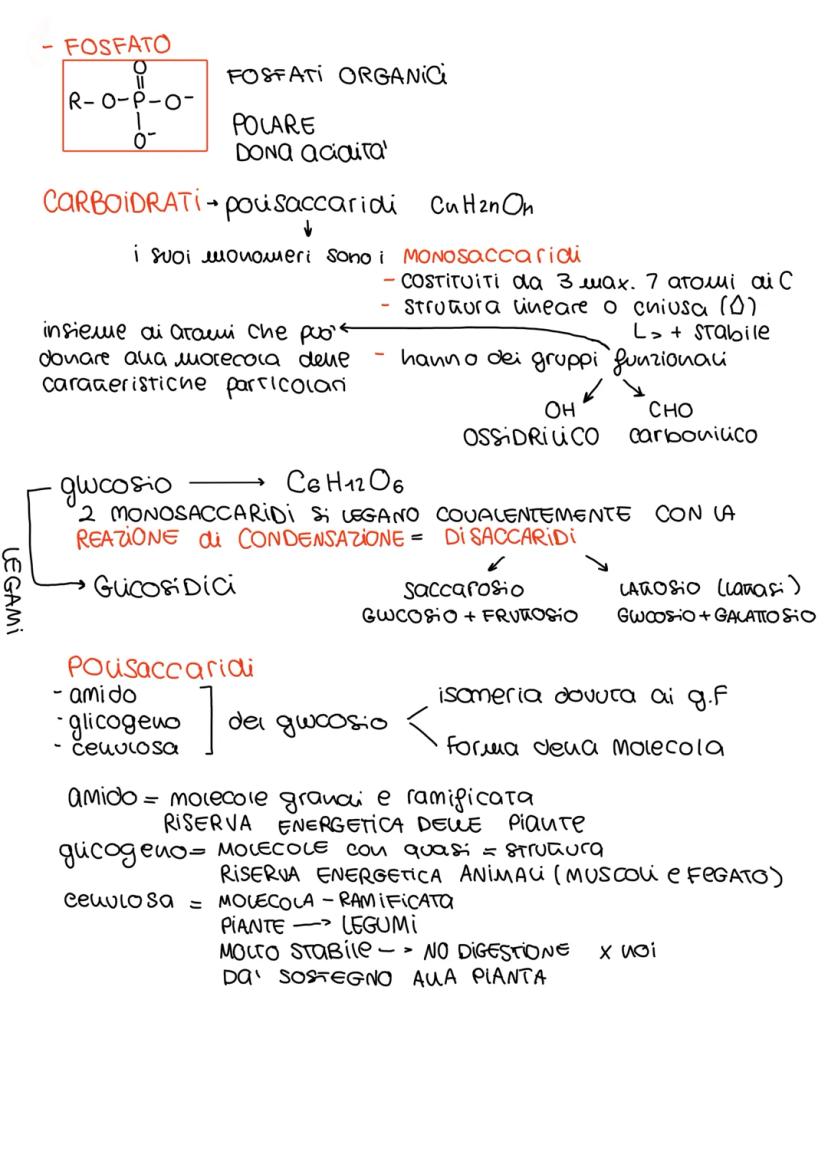 - FOSFATO
O
R-O-P-O-
O-
FOSFATI ORGANICI
POLARE
DONA ACIDITA'
CARBOIDRATI → polisaccaridi CnH2nOn
↓
i suoi monomeri sono i MONOSACCARIDI
- COSTITUITI da 3 max. 7 atomi di C
- struttura lineare o chiusa (△)
L> + stabile
- hanno dei gruppi funzionali
insieme di atomi che può
donare alla molecola delle
caratteristiche particolari
OH CHO
OSSIDRILICO carbonilico
glucosio → C6H12O6
2 MONOSACCARIDI SI LEGANO COVALENTEMENTE CON LA
REAZIONE di CONDENSAZIONE = DISACCARIDI
LEGAMI
→ GLICOSIDICI
saccarosio LATTOSIO (lattasi)
GLUCOSIO + FRUTTOSIO GLUCOSIO + GALATTOSIO
POLISACCARIDI
- amido
- glicogeno
- cellulosa
del glucosio
isomeria dovuta ai g.F
forma della molecola
amido = molecole grandi e ramificata
RISERVA ENERGETICA DELLE PIANTE
glicogeno = MOLECOLE con quasi = STRUTTURA
RISERVA ENERGETICA ANIMALI (MUSCOLI e FEGATO)
cellulosa = MOLECOLA - RAMIFICATA
PIANTE → LEGUMI
MOLTO STABILE -> NO DIGESTIONE x noi
DA' SOSTEGNO ALLA PIANTA